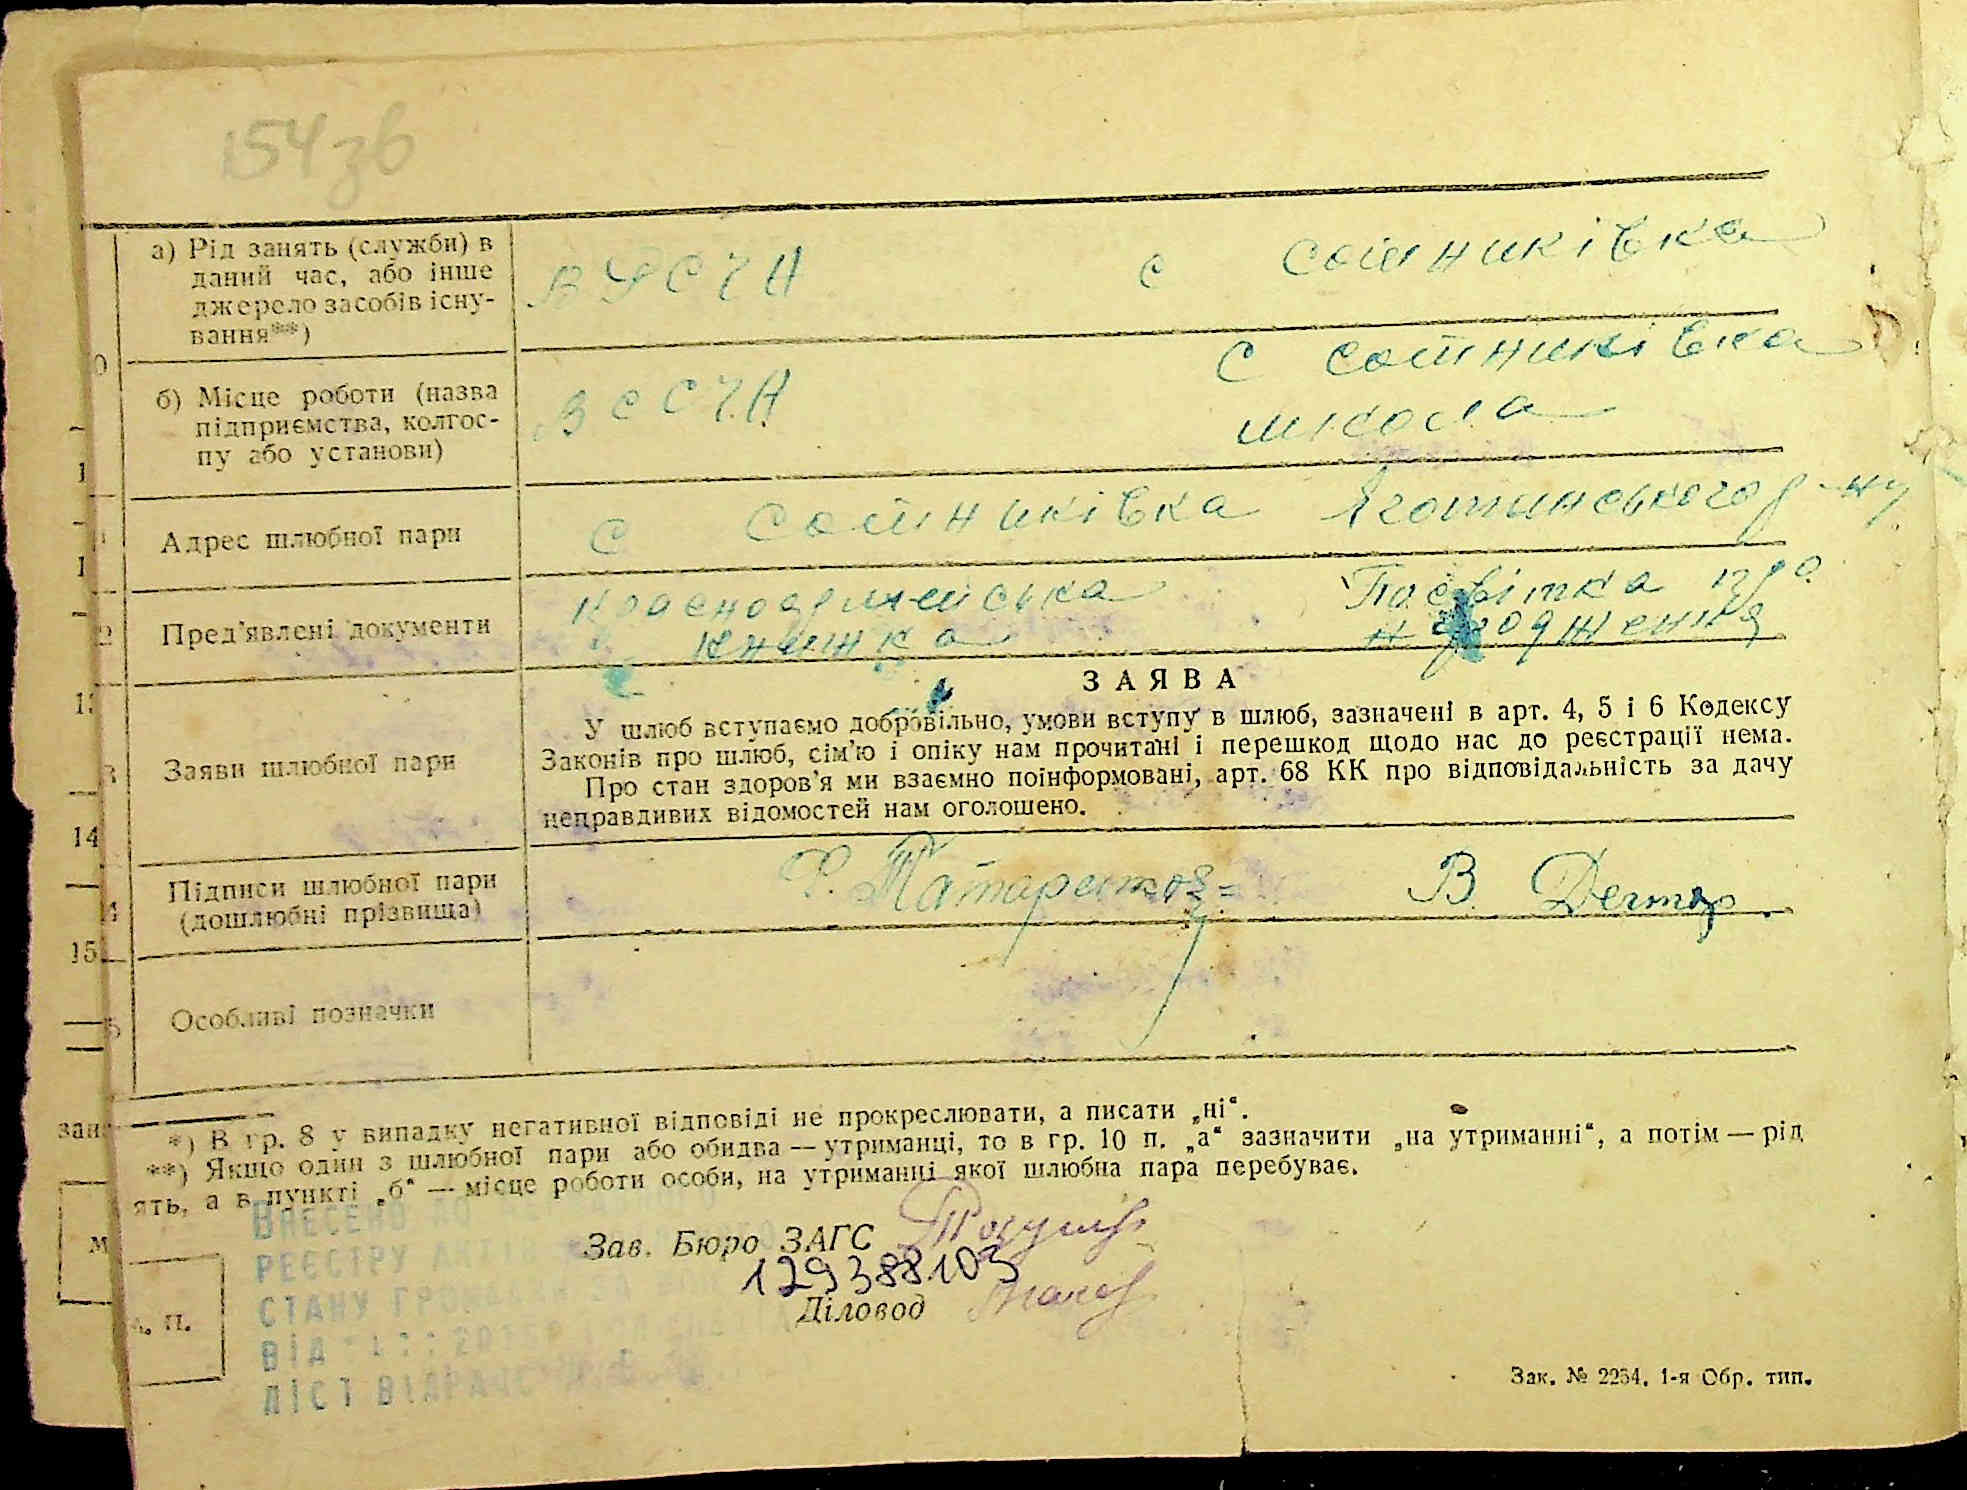 154зв
а) Рід занять (служби) в
даний час, або інше
джерело засобів існу-
вання**)
с Сотниківка
б) Місце роботи (назва
підприємства, колгос-
пу або установи)
с Сотниківка
школа
Адрес шлюбної пари
с Сотниківка Яготинського р-ну
Пред’явлені документи
Красноармейська
книжка
Посвітка про
народження
Заяви шлюбної пари
ЗАЯВА
У шлюб вступаємо добровільно, умови вступу в шлюб, зазначені в арт. 4, 5 і 6 Кодексу
Законів про шлюб, сім’ю і опіку нам прочитані і перешкод щодо нас до реєстрації нема.
Про стан здоров’я ми взаємно поінформовані, арт. 68 КК про відповідальність за дачу
неправдивих відомостей нам оголошено.
Підписи шлюбної пари
(дошлюбні прізвища)
В. Дегтяр
Особливі позначки
*) В гр. 8 у випадку негативної відповіді не прокреслювати, а писати „ні“.
**) Якщо один з шлюбної пари або обидва — утриманці, то в гр. 10 п. „а“ зазначити „на утриманні“, а потім — рід
ять, а в пункті „б“ — місце роботи особи, на утриманні якої шлюбна пара перебуває.
Зав. Бюро ЗАГС
129388103
Діловод
ВНЕСЕНО ДО
РЕЄСТРУ АКТІВ
СТАНУ ГРОМАДЯН ЗА
ВІД
П.
Зак. № 2264. 1-я Обр. тип.
14
15